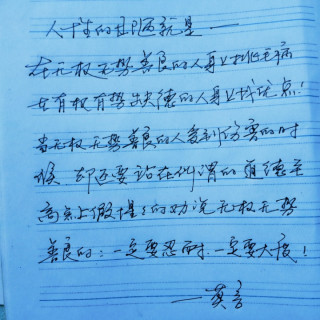 人性的丑陋就是——
在无权无势善良的人身上挑毛病
在有权有势缺德的人身上找优点!
当无权无势善良的人受到伤害的时
候,却还要站在所谓的道德至
高点上假惺惺的劝说无权无势
善良的:一定要忍耐,一定要大度!
——莫言